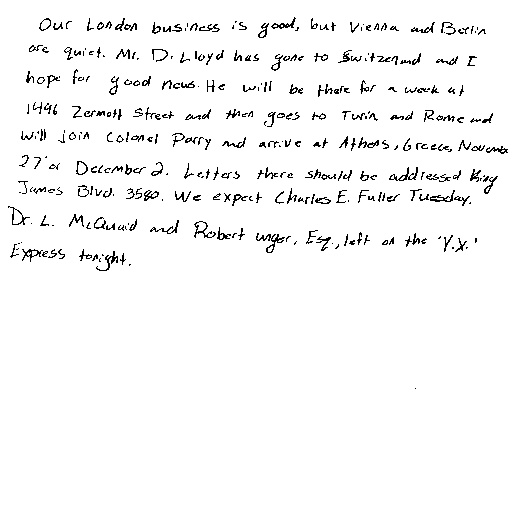 Our London business is good, but Vienna and Berlin
are quiet. Mr. D. Lloyd has gone to Switzerland and I
hope for good news. He will be there for a week at
1496 Zermott Street and then goes to Turin and Rome and
will join Colonel Parry and arrive at Athens, Greece, November
27 or December 2. Letters there should be addressed King
James Blvd. 3580. We expect Charles E. Fuller Tuesday.
Dr. L. McQuaid and Robert Unger, Esq., left on the 'Y.X.'
Express tonight.